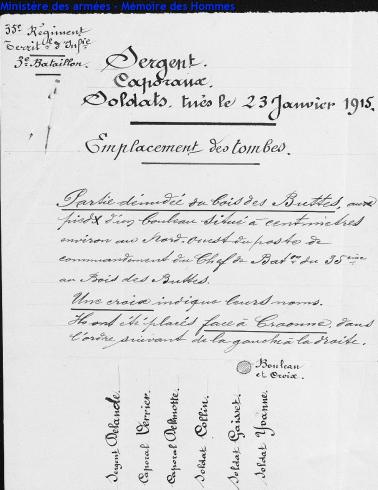 Ministère des armées - Mémoire des Hommes
35e Régiment
Territ.l d'Inf.ie
3e Bataillon.
Sergent.
Caporaux.
Soldats. tués le 23 Janvier 1915.
Emplacement des tombes.
Partie dénudée du bois des Buttes, aux
pieds d'un bouleau situé à centimètres
environ au Nord-ouest du poste de
commandement du Chef de Bat.on du 35ème
au Bois des Buttes.
Une croix indique leurs noms.
Ils ont été placés face à Craonne, dans
l'ordre suivant de la gauche à la droite.
Bouleau
et Croix.
Sergent Delande.
Caporal Verrier.
Caporal Delmotte.
Soldat Collin.
Soldat Gaisset.
Soldat Yvonne.